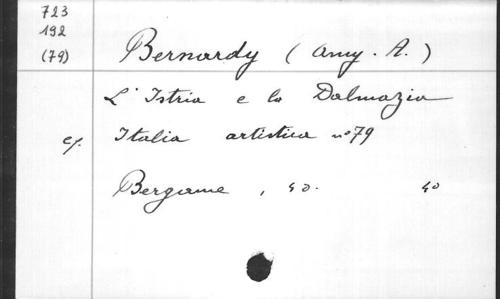 723
192
(79)
Bernardy (Amy. A.)
L'Istria e la Dalmazia
cf. Italia artistica nº79
Bergame, 40. 40